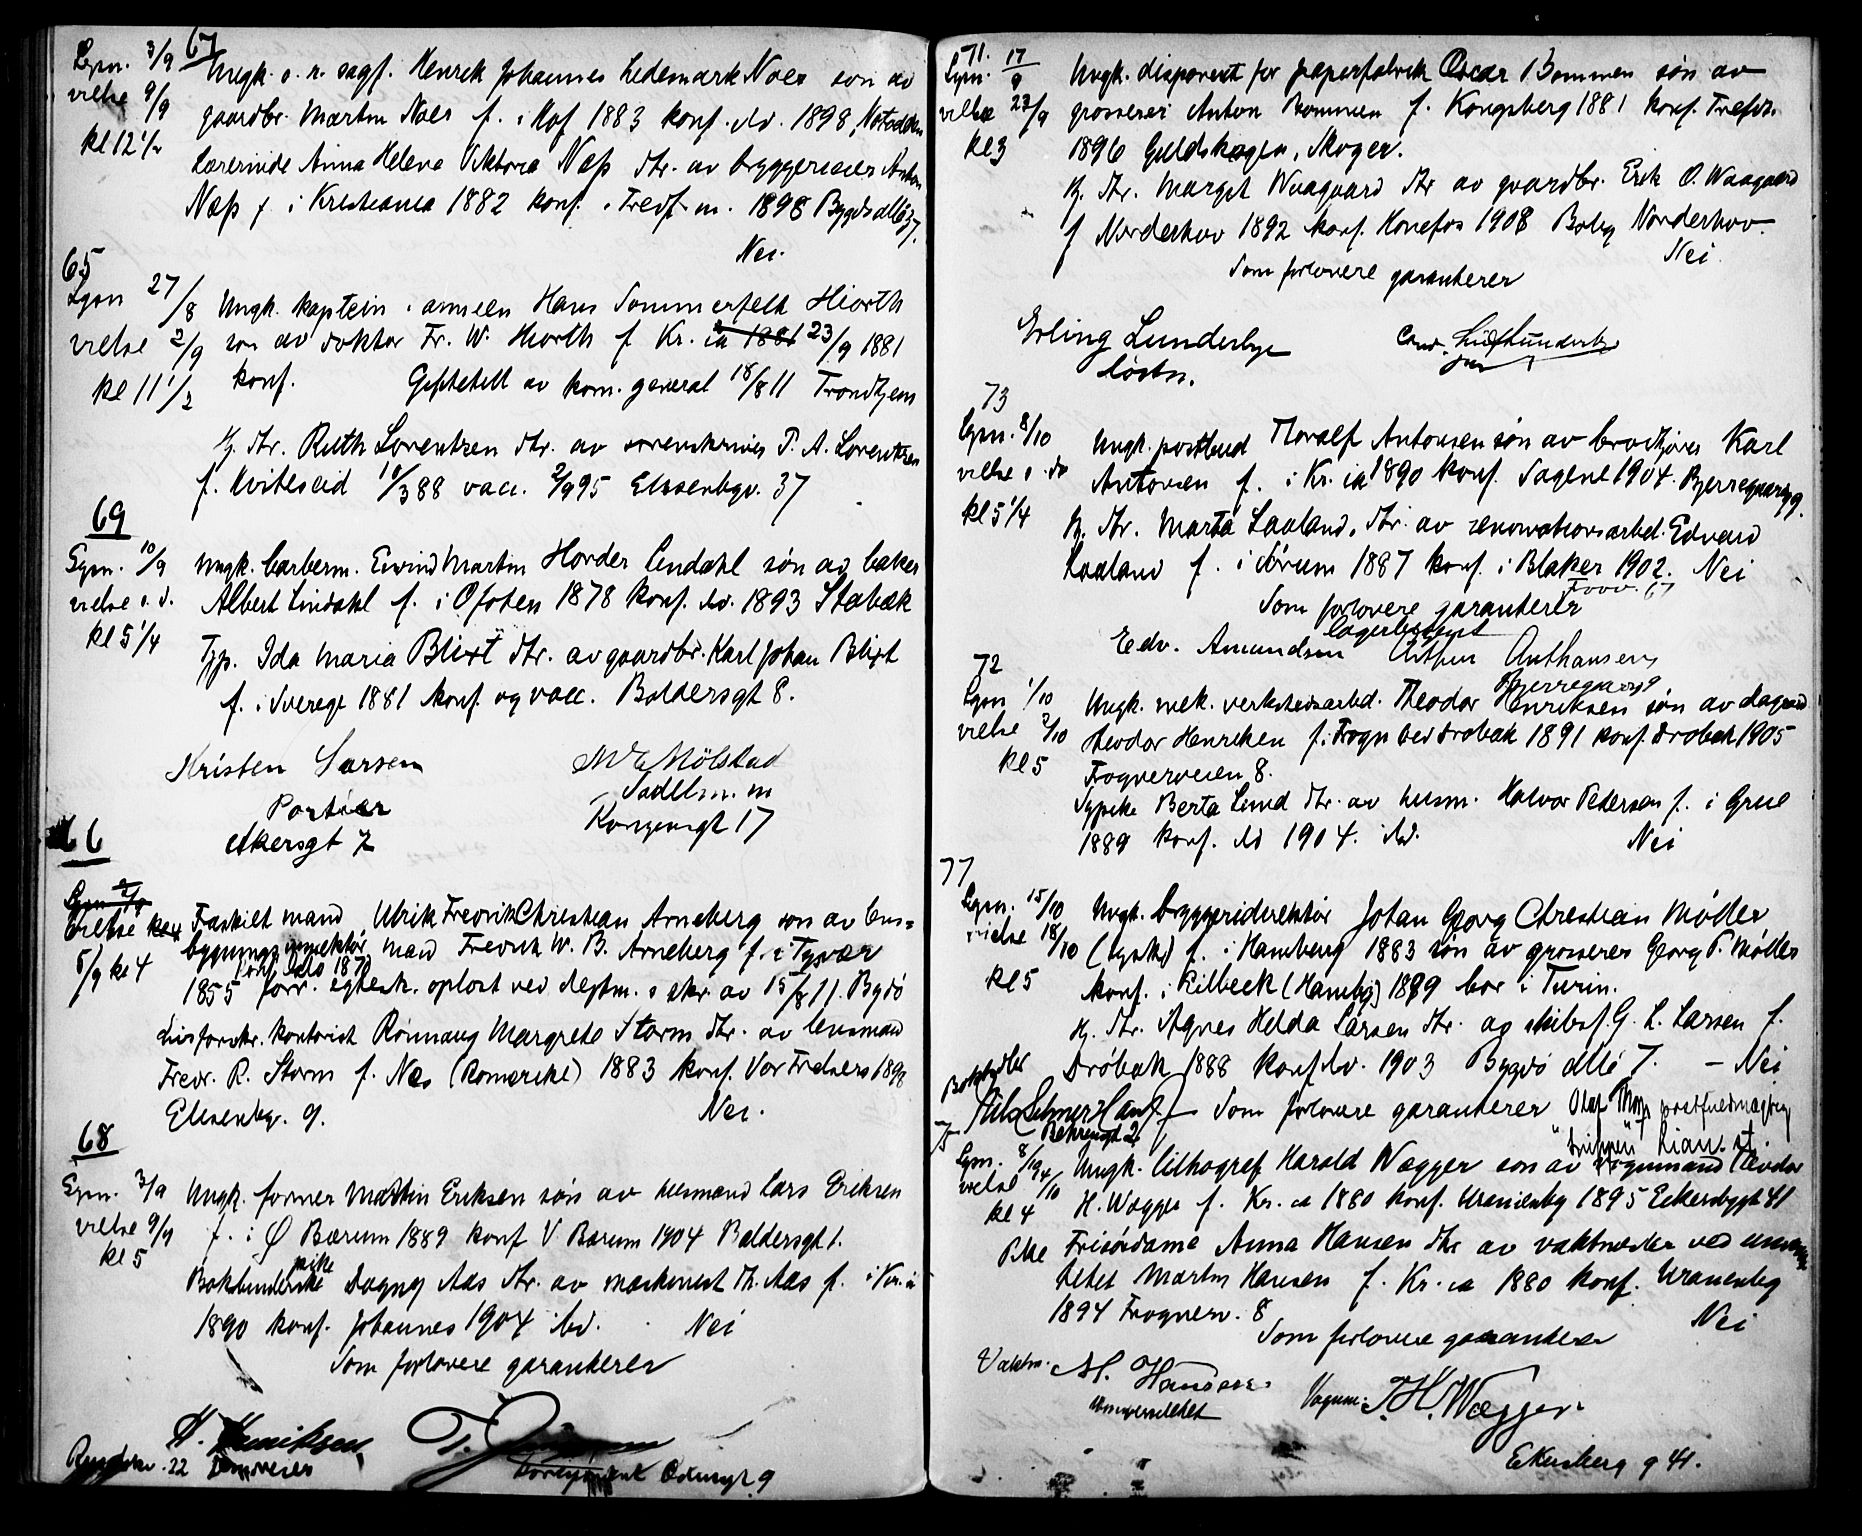 67
Lysn. 3/9 Ungk. o. r. sagf. Henrik Johannes Ledemark Naes søn av
vielse 9/9 gaardbr. Martin Naes f. i Hof 1883 konf. ibd. 1898, Notodden
kl 12 1/2 Lærerinde Anna Helene Viktoria Næss dtr. av byggereier Anton
Næss f. i Kristiania 1882 konf. i Tredf. m. 1898 Bygdø allé 37.
Nei.
65
Lysn 27/8 Ungk. kaptein i armeen Hans Sommerfelt Hiorth
vielse 2/9 søn av doktor Fr. W. Hiorth f Kr. ca 1881 23/9 1881
kl 11 1/2 konf. Gjftetill av kom. general 18/8 11 Trondhjem
Hj. dtr. Ruth Lorentzen dtr. av sorenskriver P. A. Lorentzen
f. Kviteseid 10/3 88 vacc. 2/9 95 Elisenbgv. 37
69
Lysn. 10/9 Ungk. barberm. Eivind Martin Horder Lindahl søn av baker
vielse s. d. Albert Lindahl f. i Ofoten 1878 konf. ibd. 1893 Stabæk
kl 5 1/4 Typ. Ida Maria Blixt dtr. av gaardbr. Karl Johan Blixt
f. i Sverige 1881 konf og vacc. Baldersgt 8.
Kristen Larsen Mølstad
Portier Sadelm. m
Akersgt 7 Kongensgt 17
66
Lysn 2/9
Vielse kl 4 Fraskilt mand Ulrik Fredrik Christian Arneberg søn av lens-
bygningsinspektør mand Fredrik W. B. Arneberg f. i Tysvær
5/9 kl 4 konf. 1870
1855 forr. egtesk. opløst ved deptm. s skr. av 15/8 11. Bygdø
Livsforsikr. kontorist Rönnaug Margrete Storm dtr. av lensmand
Fredr. R. Storm f. Nes (Romerike) 1883 konf. Vor Frelsers 1898
Elisenbgv. 9. Nei.
68
Lysn. 3/9 Ungk. former Martin Eriksen søn av husmand Lars Eriksen
vielse 9/9 f. i Ø Bærum 1889 konf V. Bærum 1904 Baldersgt 1.
kl 5 pike
Bokbinderske Dagny Aas dtr. av maskinist Th. Aas f. i Kr. ca
1890 konf. Johannes 1904 ibd. Nei
Som forlovere garanterer
H. Henriksen
22 9
71.
Lysn. 17/9 Ungk. disponent for papirfabrik Oscar Bommen søn av
vielse 23/9 grosserer Anton Bommen f. Kongsberg 1881 konf. Trefds.
kl 3 1896 Guldskogen, Skoger.
Hj. dtr. Margit Waagaard dtr av gaardbr. Erik O. Waagaard
f Norderhov 1892 konf. Hønefos 1908 Bolig Norderhov.
Nei.
Som forlovere garanterer
Erling Lunderbye
73
Lysn. 8/10 Ungk. postbud Thoralf Antonsen søn av brødkjører Karl
vielse s. do Antonsen f. i Kr. ca 1890 konf. Sagene 1904. Bjerregaardsg 9.
kl 5 1/4 Hj. dtr. Marta Laaland, dtr. av renovationsarbd. Edvard
Laaland f. i Sørum 1887 konf. i Blaker 1902. Nei
Som forlovere garanterer
Edv. Amundsen Arthur Anthonsen
72 Bjerregaardsg
Lysn 1/10 Ungk. mek. verkstedsarbd. Theodor Henriksen søn av dagarb
vielse 2/10 Theodor Henriksen f. i Frogn ved Drøbak 1891 konf. Drøbak 1905
kl 5 Frognerveien 8.
Sypike Berta Lund dtr. av husm. Halvor Petersen f. i Grue
1889 konf. ibd 1904. ibd. Nei
77
Lysn. 15/10 Ungk. bryggeridirektør Johan Georg Christian Møller
vielse 18/10 (tysk) f. i Hamburg 1883 søn av grosserer Georg P. Møller
kl 5 konf. i Eilbeck (Hambg) 1899 bor i Turin.
Hj. dtr. Agnes Helda Larsen dtr. av skibsf. G. L. Larsen f.
Drøbak 1888 konf. ibd. 1903 Bygdø allé 7. – Nei
Som forlovere garanterer
75
Lysn. 8/10 Ungk. lithograf Harald Wægger søn av vognmand Teodor
vielse 14/10 H. Wægger f. Kr. ca 1880 konf. Uranienbg 1895 Eckersbgt 41
kl 4
Pike Frisørdame Anna Hansen dtr av vaktmester ved univer
sitetet Martin Hansen f. Kr. ca 1880 konf. Uranienbg
1894 Frognerv. 8 Nei
Som forlovere garanterer
Vaktm. M. Hansen Vognm. T. H. Wægger.
Universitetet
Ekersberg g 41.